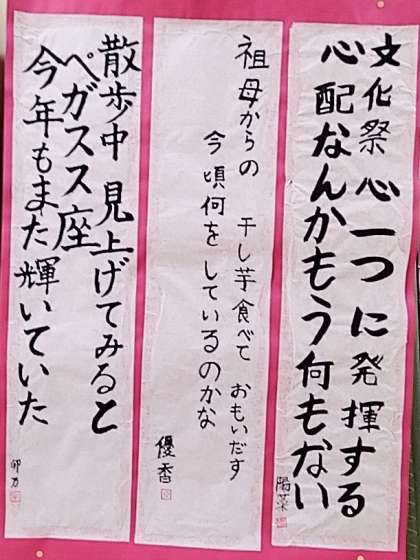 文化祭心一つに発揮する
心配なんかもう何もない
陽菜
祖母からの 干し芋食べて おもいだす
今頃何をしているのかな
優香
散歩中 見上げてみると
ペガスス座
今年もまた輝いていた